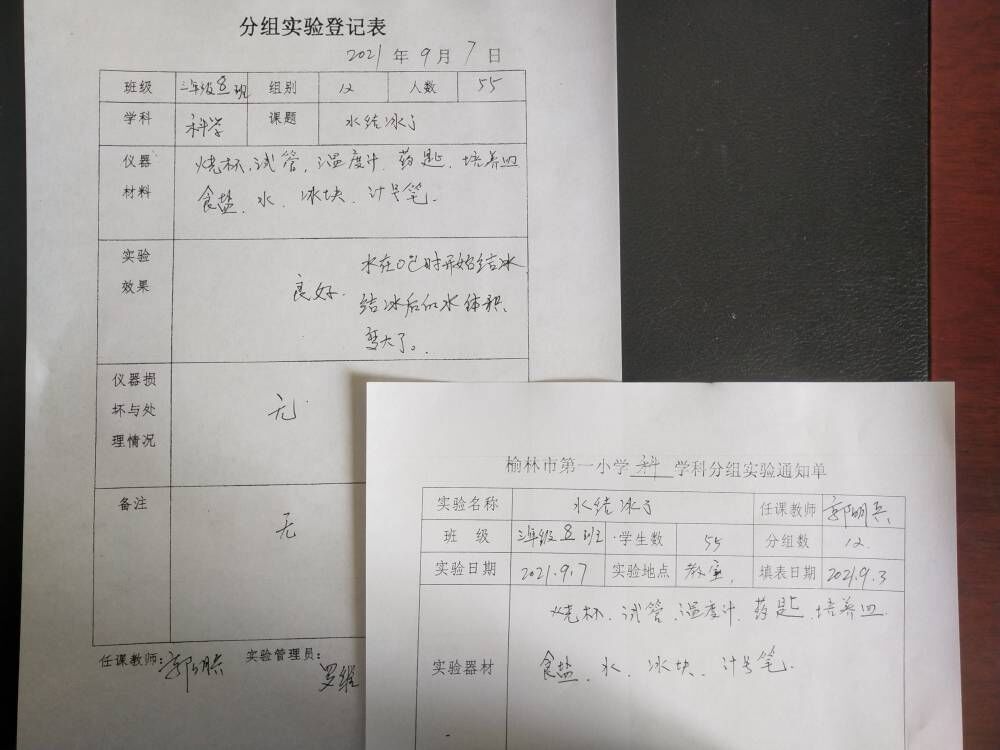 分组实验登记表
2021 年 9 月 7 日
班级 三年级8班 组别 12 人数 55
学科 科学 课题 水结冰了
仪器材料 烧杯、试管、温度计、药匙、培养皿
食盐、水、冰块、计号笔.
实验效果 良好. 水在0℃时开始结冰
结冰后的水体积
变大了。
仪器损坏与处理情况 无
备注 无
任课教师: 郭明兵 实验管理员: 罗维
榆林市第一小学 科 学科分组实验通知单
实验名称 水结冰了 任课教师 郭明兵
班 级 三年级8班 学生数 55 分组数 12.
实验日期 2021.9.7 实验地点 教室. 填表日期 2021.9.3
实验器材 烧杯、试管、温度计、药匙、培养皿.
食盐、水、冰块、计号笔.